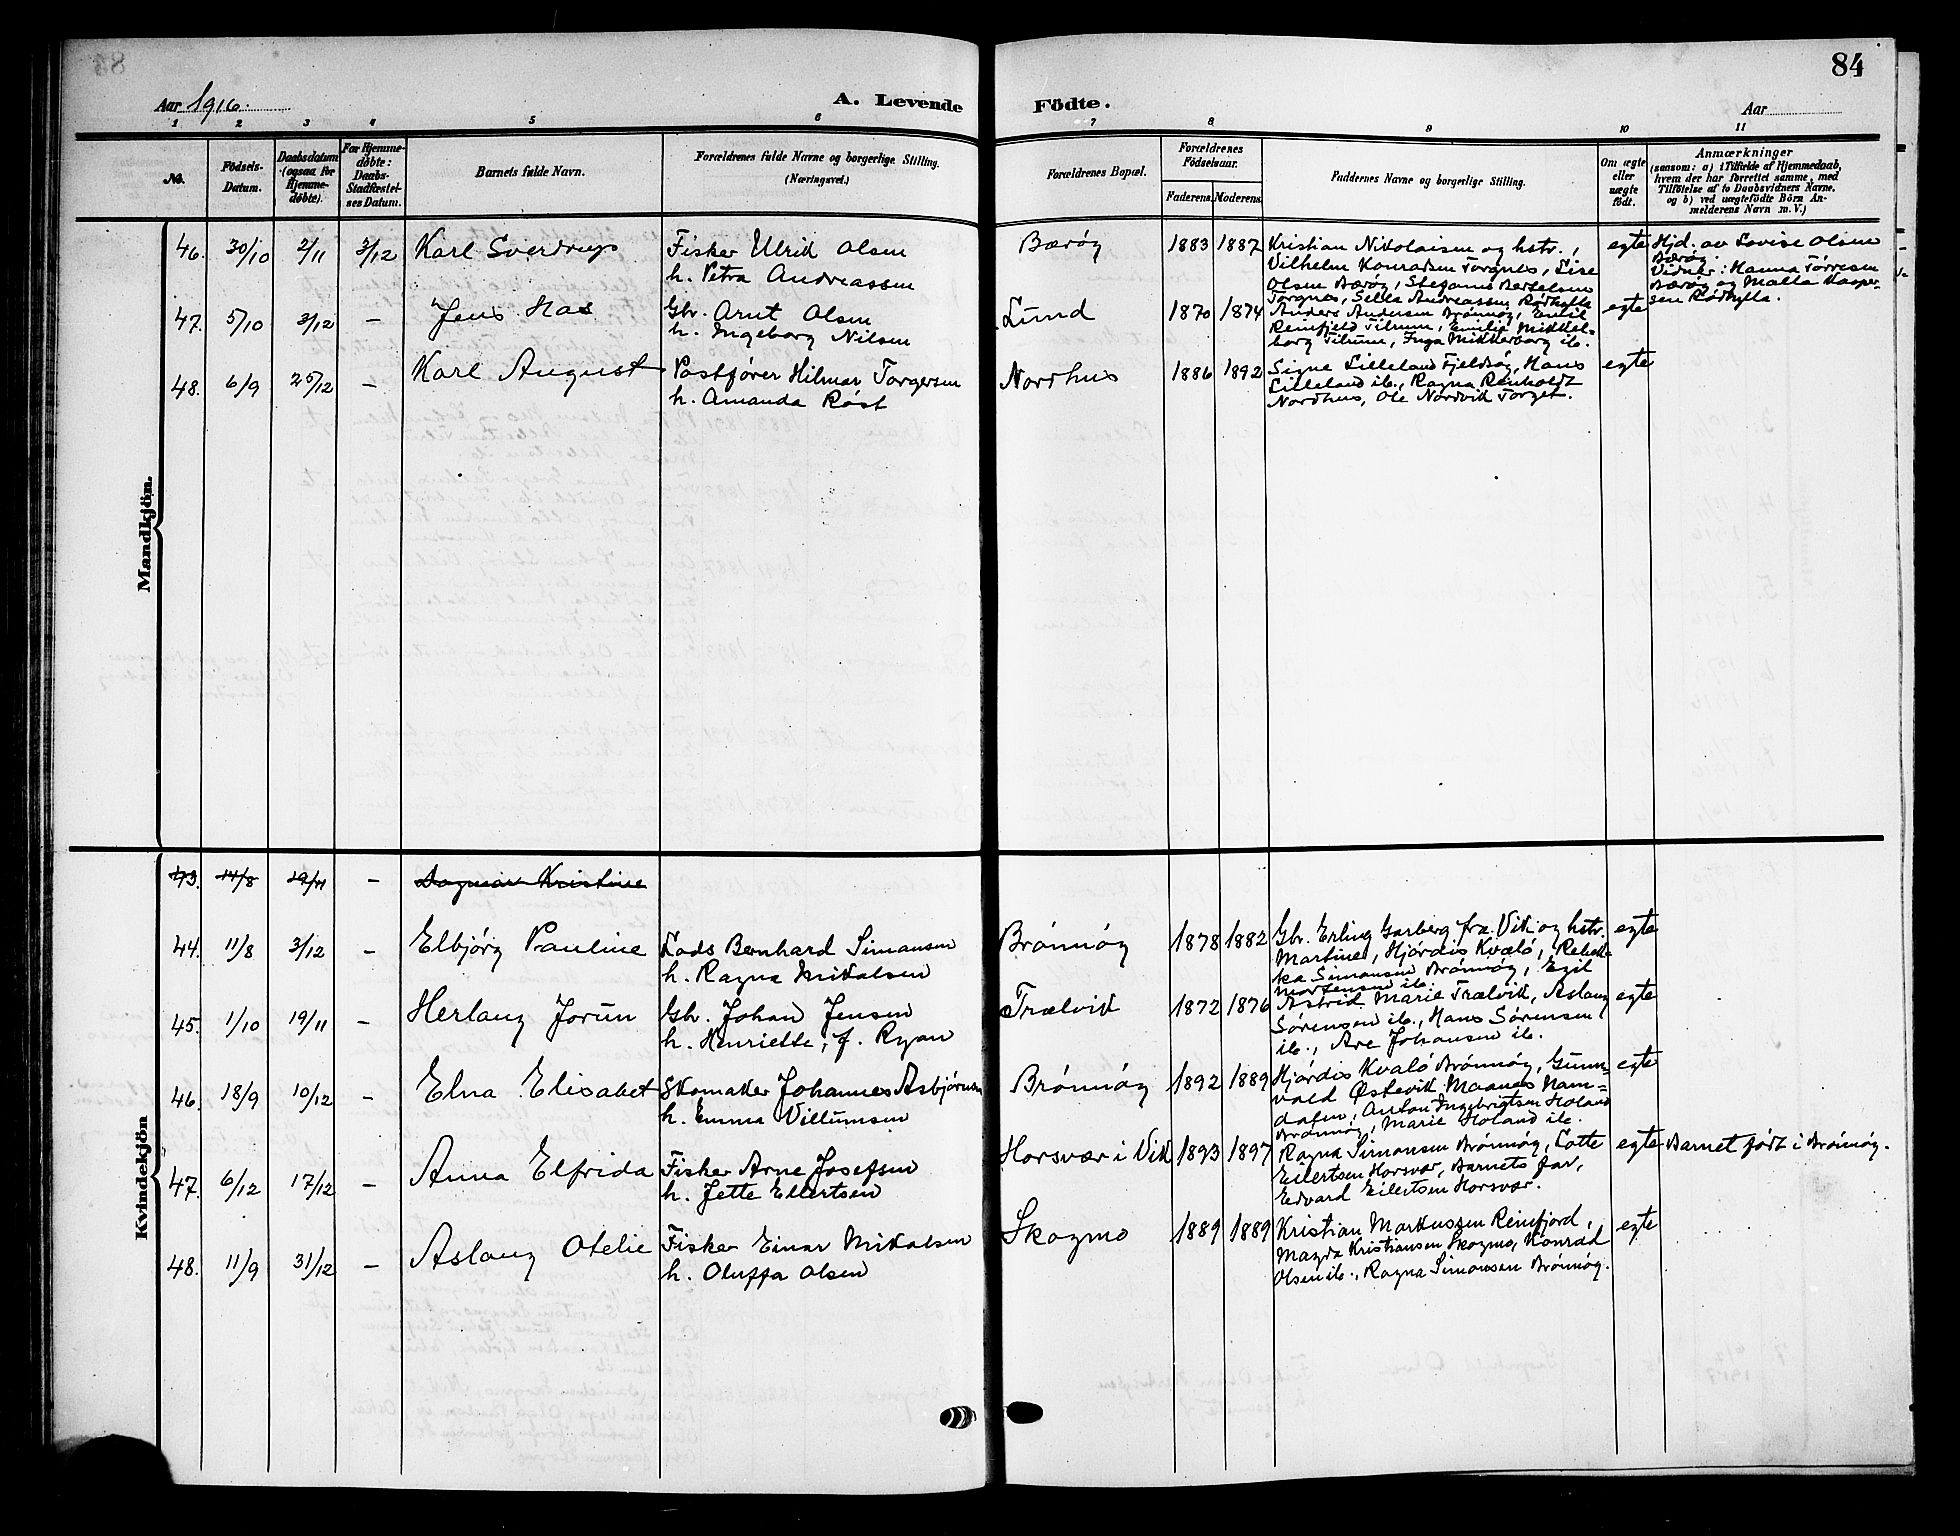 84
Aar 1916.
A. Levende
Födte.
Aar
1 2 3 4 5 6 7 8 9 10 11
No.
Födsels-
Datum.
Daabsdatum
(ogsaa for
Hjemme-
døbte).
For Hjemme-
døbte:
Daabs-
Stadfæstel-
ses Datum.
Barnets fulde Navn.
Forældrenes fulde Navne og borgerlige Stilling.
(Næringsvei.)
Forældrenes Bopæl.
Forældrenes
Födselsaar.
Faderens. Moderens.
Faddernes Navne og borgerlige Stilling.
Om ægte
eller
uægte
födt.
Anmærkninger
(saasom: a) i Tilfælde af Hjemmedaab,
hvem der har forrettet samme, med
Tilföielse af to Daabsvidners Navne.
og b) ved uægtefödte Börn An-
melderens Navn m. V.)
Mandkjön.
46. 30/10 2/11 3/12 Karl Sverdrup
Fisker Ulrik Olsen
h. Petra Andreassen
Bærøy 1883 1887
Kristian Nikolaisen og hstr.,
Vilhelm Konradsen Torgnes, Lise
Olsen Bærøy, Stefanus Bertelsen
Torgnes, Selea Andreassen Rødhylla
egte
Hjd. av Lovise Olsen
Bærøy.
Vidner: Hanna Tørresen
Bærøy og Malla Kasper-
sen Rødhylla.
47. 5/10 3/12 – Jens Has
Gbr. Arnt Olsen
h. Ingeborg Nilsen
Lund 1870 1874
Anders Andersen Brønnøy, Emil
Reinfjeld Tilrum, Emilie Mikkel-
borg Tilrum, Inga Mikkelborg ib.
egte
48. 6/9 25/12 – Karl August
Postfører Hilmar Torgersen
h. Amanda Røst
Nordhus 1886 1892
Signe Lilleland Fjeldsøy, Hans
Lilleland ib., Ragna Reinholdt
Nordhus, Ole Nordvik Torget.
egte
Kvindekjön
43. 14/8 19/11 – Dagmar Kristine
44. 11/8 3/12 – Elbjørg Pauline
Lods Bernhard Simonsen
h. Ragna Mikalsen
Brønnøy 1878 1882
Gbr. Erling Garberg fra Vik og hstr.
Martine, Hjørdis Kvalø, Rebek-
ka Simonsen Brønnøy, Egil
Mortensen ib.
egte
45. 1/10 19/11 – Herlaug Jorun
Gbr. Johan Jensen
h. Henriette, f. Ryan
Trælvik 1872 1876
Astrid Marie Trælvik, Aslaug
Sørensen ib., Hans Sørensen
ib., Are Johansen ib.
egte
46. 18/9 10/12 – Elna Elisabet
Skomaker Johannes Asbjørnsen
h. Emma Villumsen
Brønnøy 1892 1889
Hjørdis Kvalø Brønnøy, Gunn-
vald Østevik Moanes Nam-
dalen, Anton Ingebrigtsen Holand
Brønnøy, Marie Holand ib.
egte
47. 6/12 17/12 – Anna Elfrida
Fisker Arne Josefsen
h. Jette Eilertsen
Horsvær i Vik 1893 1897
Ragna Simonsen Brønnøy, Lotte
Eilertsen Horsvær, Barnets far,
Edvard Eilertsen Horsvær.
egte
Barnet født i Brønnøy.
48. 11/9 31/12 – Aslaug Otelie
Fisker Einar Mikalsen
h. Oluffa Olsen
Skogmo 1889 1889
Kristian Markussen Reinfjord,
Magda Kristiansen Skogmo, Konrad
Olsen ib., Ragna Simonsen Brønnøy.
egte